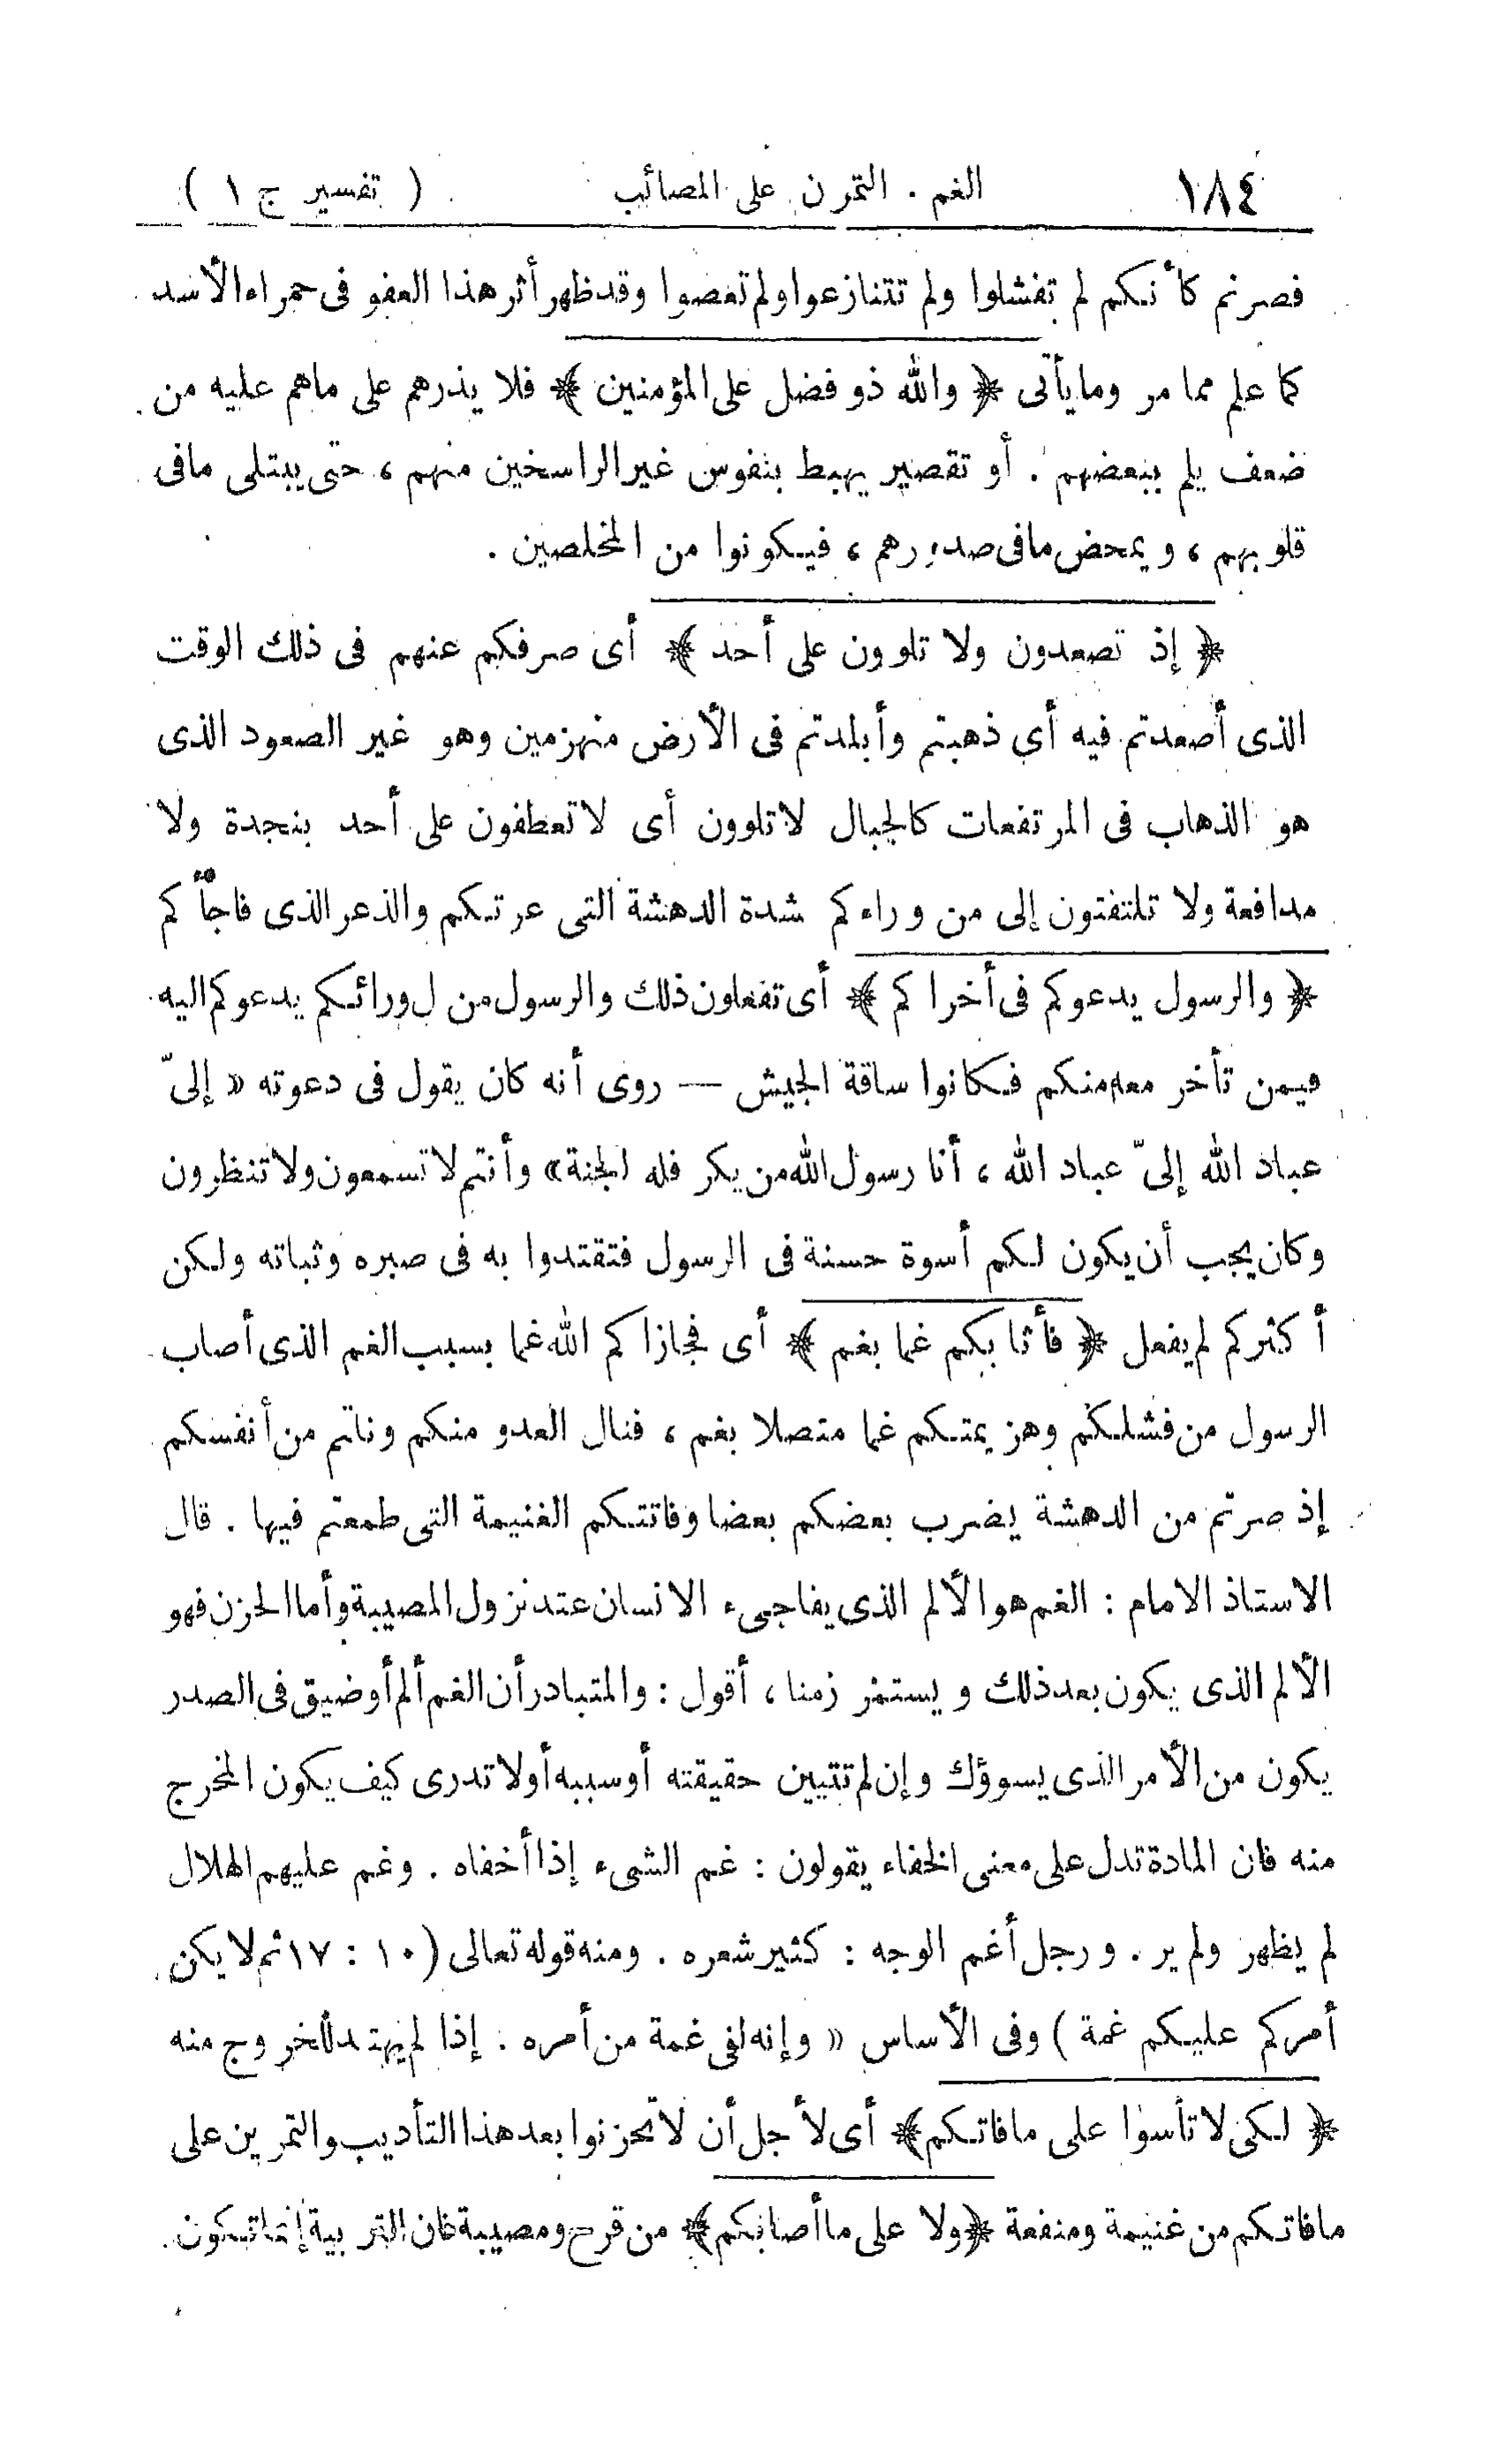 ١٨٤ الغم . التمرن على المصائب ( تفسير ج ١ )
فصرتم كأنكم لم تفشلوا ولم تتنازعوا ولم تعصوا وقد ظهر أثر هذا العفو فى حمراء الأسد
كما علم مما مر وما يأتى ﴿ والله ذو فضل على المؤمنين ﴾ فلا يذرهم على ماهم عليه من
ضعف يلم ببعضهم . أو تقصير يهبط بنفوس غير الراسخين منهم ، حتى يبتلى مافى
قلوبهم ، ويمحض مافى صدورهم ، فيكونوا من المخلصين .
﴿ إذ تصعدون ولا تلوون على أحد ﴾ أى صرفكم عنهم فى ذلك الوقت
الذى أصعدتم فيه أى ذهبتم وأبلدتم فى الأرض منهزمين وهو غير الصعود الذى
هو الذهاب فى المرتفعات كالجبال لا تلوون أى لا تعطفون على أحد بنجدة ولا
مدافعة ولا تلتفتون إلى من وراءكم شدة الدهشة التى عرتكم والذعر الذى فاجأكم
﴿ والرسول يدعوكم فى أخراكم ﴾ أى تفعلون ذلك والرسول من لورائكم يدعوكم اليه
فيمن تأخر معه منكم فكانوا ساقة الجيش — روى أنه كان يقول فى دعوته « إلىّ
عباد الله إلىّ عباد الله ، أنا رسول الله من يكر فله الجنة» وأنتم لا تسمعون ولا تنظرون
وكان يجب أن يكون لكم أسوة حسنة فى الرسول فتقتدوا به فى صبره وثباته ولكن
أكثركم لم يفعل ﴿ فأثابكم غما بغم ﴾ أى فجازاكم الله غما بسبب الغم الذى أصاب
الرسول من فشلكم وهزيمتكم غما متصلا بغم ، فنال العدو منكم ونلتم من أنفسكم
إذ صرتم من الدهشة يضرب بعضكم بعضا وفاتتكم الغنيمة التى طمعتم فيها . قال
الاستاذ الامام : الغم هو الألم الذى يفاجىء الانسان عتد نزول المصيبة وأما الحزن فهو
الألم الذى يكون بعد ذلك ويستمر زمنا ، أقول : والمتبادر أن الغم ألم أو ضيق فى الصدر
يكون من الأمر الذى يسوؤك وإن لم تتبين حقيقته أو سببه أو لا تدرى كيف يكون المخرج
منه فان المادة تدل على معنى الخفاء يقولون : غم الشىء إذا أخفاه . وغم عليهم الهلال
لم يظهر ولم ير . ورجل أغم الوجه : كثير شعره . ومنه قوله تعالى ( ١٠ : ١٧ ثم لا يكن
أمركم عليكم غمة ) وفى الأساس « وإنه لفى غمة من أمره : إذا لم يهتد للخروج منه
﴿ لكى لا تأسوا على مافاتكم﴾ أى لأجل أن لا تحزنوا بعد هذا التأديب والتمرين على
مافاتكم من غنيمة ومنفعة ﴿ولا على ما أصابكم﴾ من قرح ومصيبة فان التربية إنما تكون